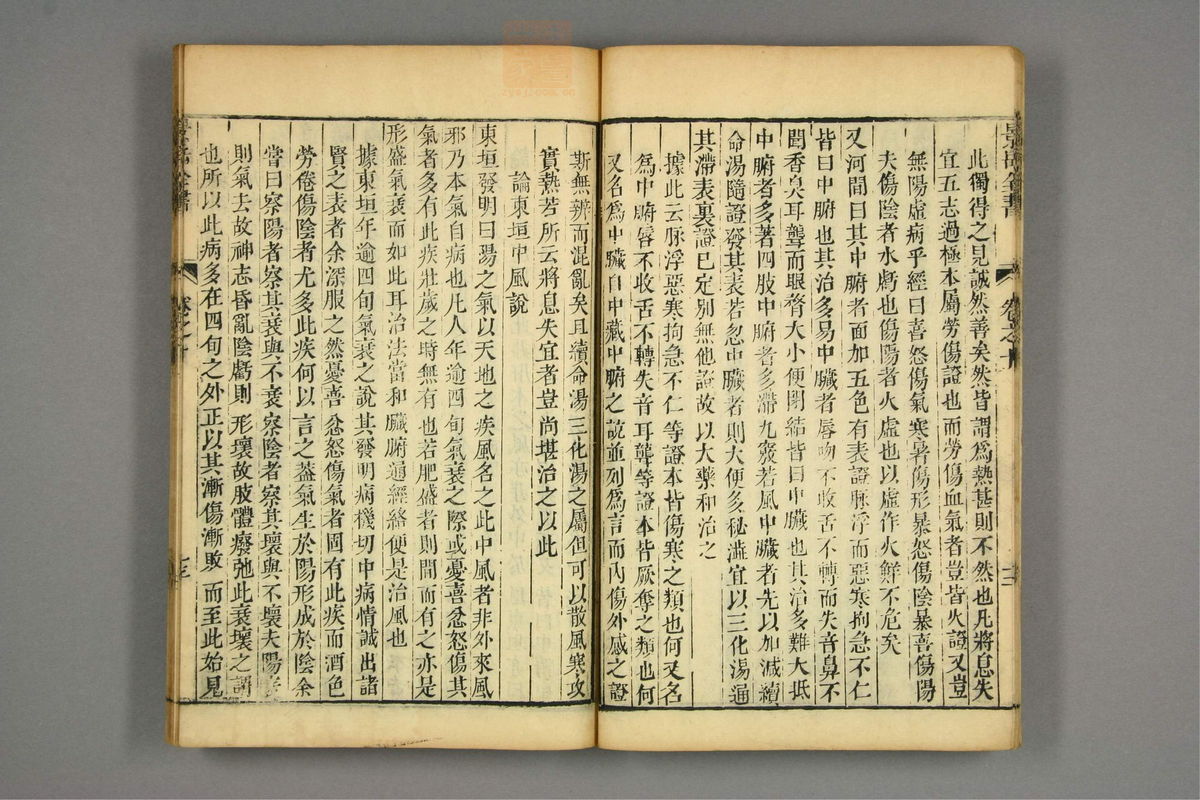 此獨得之見誠然善矣然皆謂爲熱甚則不然也凡將息失
宜五志過極本屬勞傷證也而勞傷血氣者豈皆火證又豈
無陽虛病乎經曰喜怒傷氣寒暑傷形暴怒傷陰暴喜傷陽
夫傷陰者水虧也傷陽者火虛也以虛作火鮮不危矣
又河間曰其中腑者面加五色有表證脉浮而惡寒拘急不仁
皆曰中腑也其治多易中臟者唇吻不收舌不轉而失音鼻不
聞香臭耳聾而眼瞀大小便閉結皆曰中臟也其治多難大抵
中腑者多著四肢中腑者多滯九竅若風中臟者先以加減續
命湯隨證發其表若忽中臟者則大便多秘澁宜以三化湯通
其滯表裏證已定別無他證故以大藥和治之
據此云脉浮惡寒拘急不仁等證本皆傷寒之類也何又名
爲中腑唇不收舌不轉失音耳聾等證本皆厥奪之類也何
又名爲中臟自中臟中腑之說並列爲言而內傷外感之證
斯無辨而混亂矣且續命湯三化湯之屬但可以散風寒攻
實熱若所云將息失宜者豈尚堪治之以此
論東垣中風說
東垣發明曰陽之氣以天地之疾風名之此中風者非外來風
邪乃本氣自病也凡人年逾四旬氣衰之際或憂喜忿怒傷其
氣者多有此疾壯歲之時無有也若肥盛者則間而有之亦是
形盛氣衰而如此耳治法當和臟腑通經絡便是治風也
據東垣年逾四旬氣衰之說其發明病機切中病情誠出諸
賢之表者余深服之然憂喜忿怒傷氣者固有此疾而酒色
勞倦傷陰者尤多此疾何以言之葢氣生於陽形成於陰余
嘗曰察陽者察其衰與不衰察陰者察其壞與不壞夫陽衰
則氣去故神志昏亂陰虧則形壞故肢體廢弛此衰壞之謂
也所以此病多在四旬之外正以其漸傷漸敗而至此始見